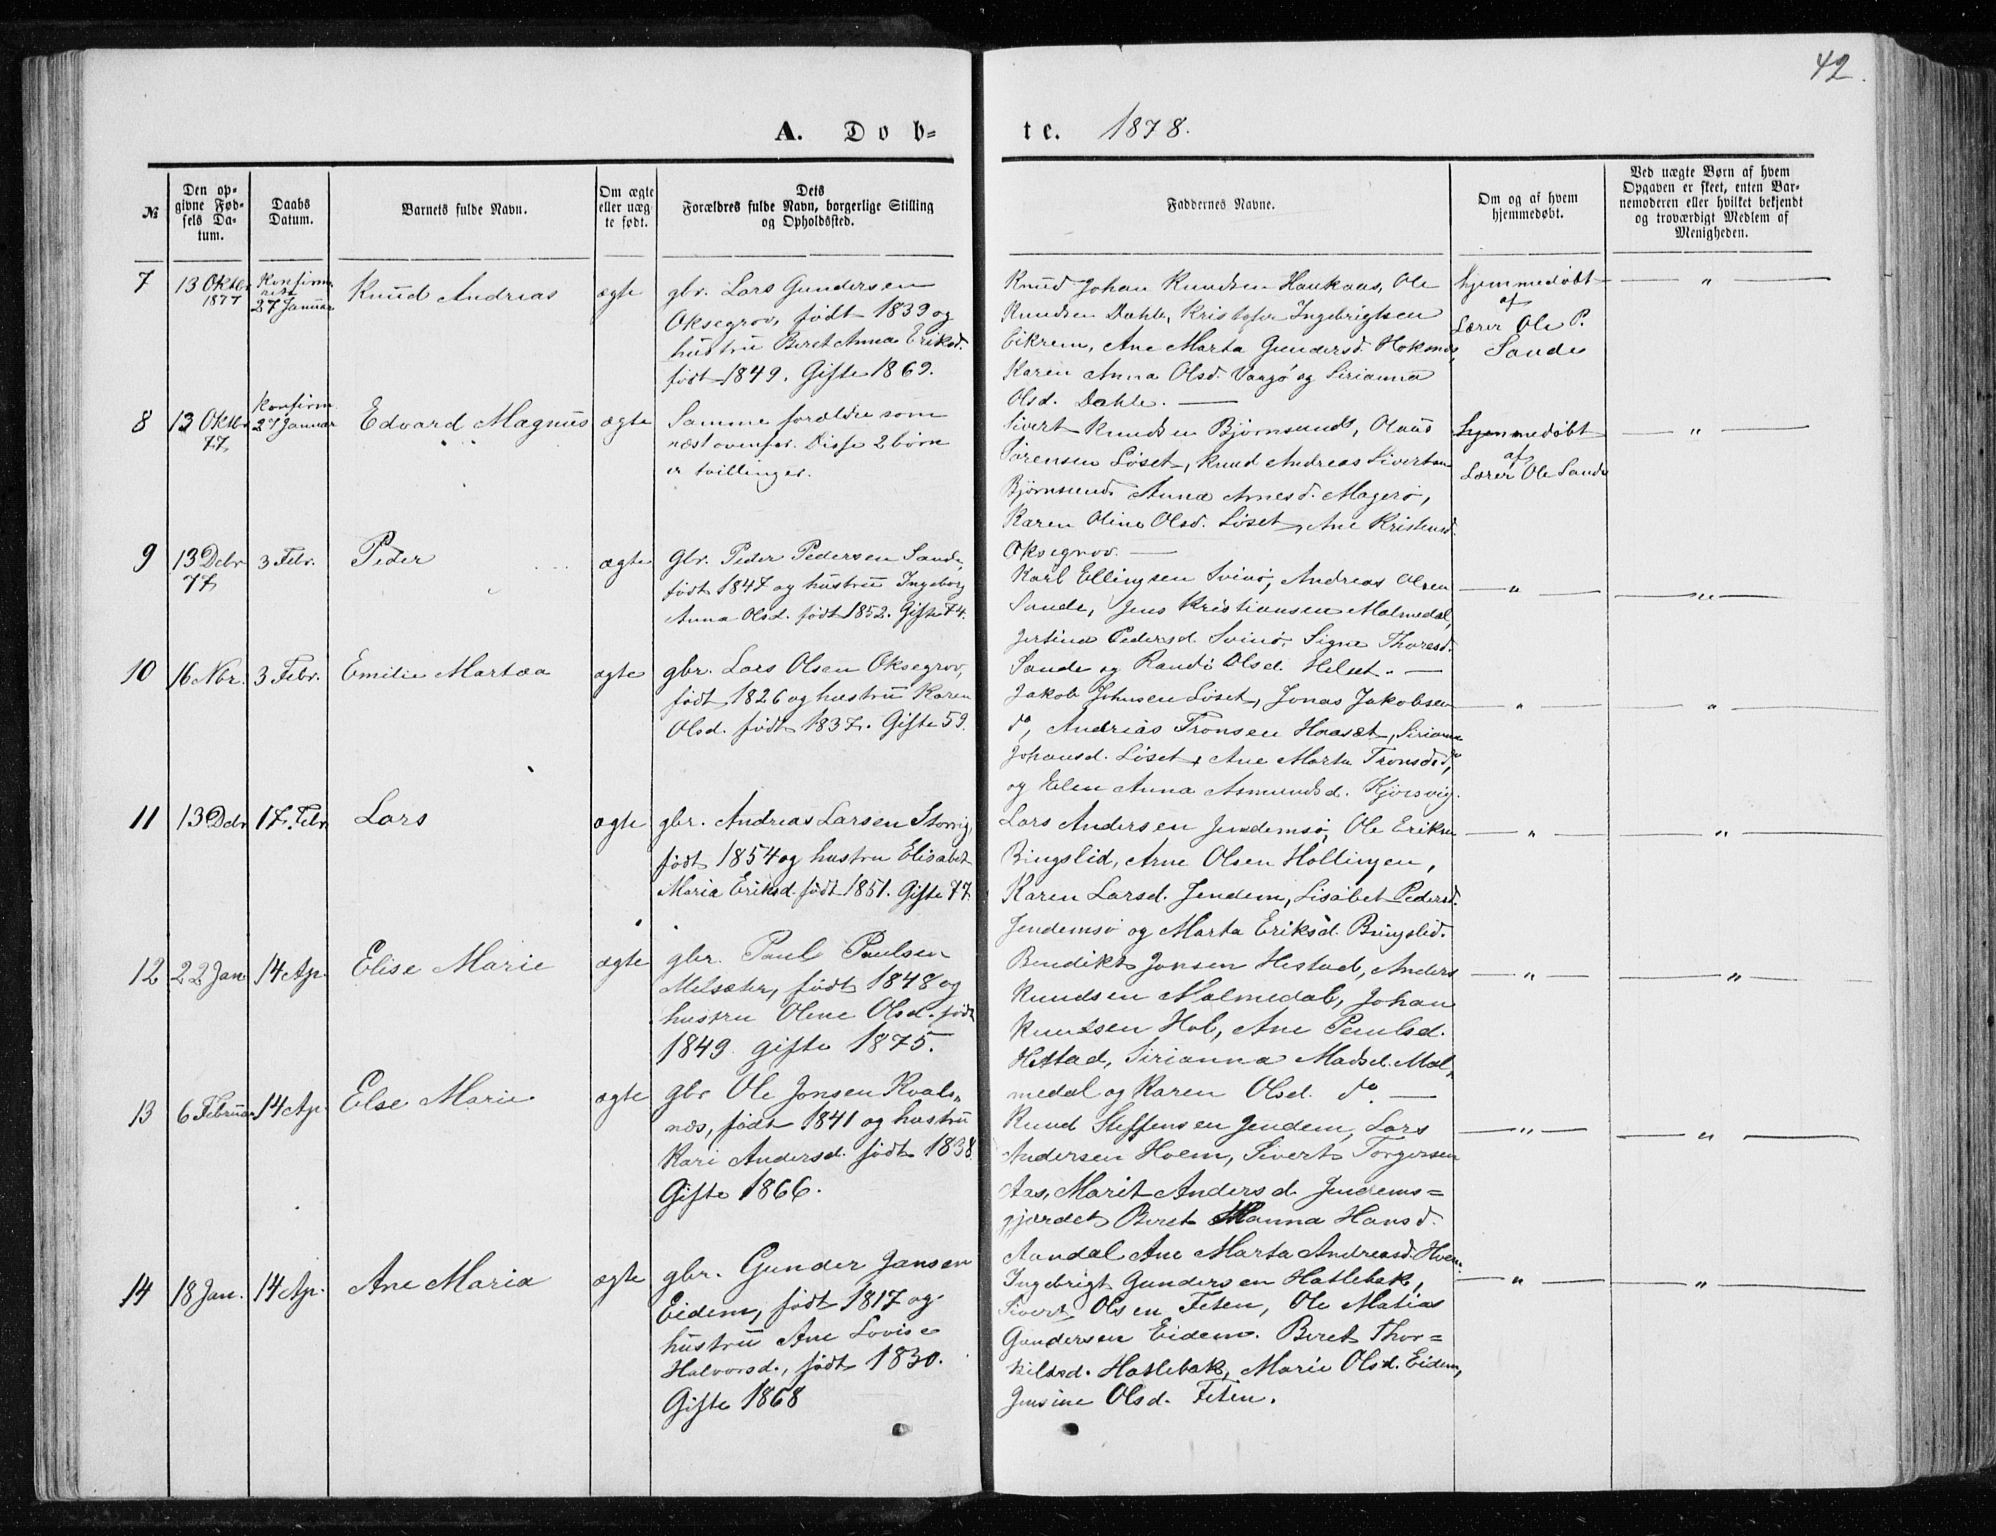 42.
A. Døb-
te. 1878.
№
Den op-
givne Fød-
sels Da-
tum.
Daabs
Datum.
Barnets fulde Navn.
Om ægte
eller uæg
te født.
Dets
Forældres fulde Navn, borgerlige Stilling
og Opholdssted.
Faddernes Navne.
Om og af hvem
hjemmedøbt.
Ved uægte Børn af hvem
Opgaven er skeet, enten Bar-
nemoderen eller hvilket bekjendt
og troværdigt Medlem af
Menigheden.
7
13 Oktbr
1877
Konfirme
rist
27 Januar
Knud Andreas
ægte
gbr. Lars Gundersen
Oksegrov, født 1839 og
hustru Beret Anna Eriksd.
født 1849. Gifte 1869.
Knud Johan Knudsen Haukaas, Ole
Knudsen Dahle, Kristofer Ingebrigtsen
Eikrem, Ane Marta Gundersd. Hoksnes,
Karen Anna Olsd. Vangö og Sirianna
Olsd. Dahle. —
hjemmedøbt
af
Lærer Ole P.
Sande
— " —
8
13 Oktbr
77
Konfirm.
27 Januar
Edvard Magnus
ægte
Samme forældre som
næst ovenfor. Disse 2 børn
er tvillinger.
Sivert Knudsen Bjørnsund, Olaus
Sørensen Løset, Knud Andreas Sivertsen
Bjørnsund, Anna Arnesd. Magerö,
Karen Oline Olsd. Løset, Ane Kristensd.
Oksegrov. —
hjemmedøbt
af
Lærer Ole Sande
— " —
9
13 Debr
77
3 Febr.
Peder
ægte
Gbr. Peder Pedersen Sande,
født 1847 og hustru Ingeborg
Anna Olsd. født 1852. Gifte 74.
Karl Ellingsen Svinö, Andreas Olsen
Sande, Jens Kristiansen Malmedal,
Jertine Pedersd. Svinö, Signe Thoresd.
Sande og Randi Olsd. Helset. —
— " —
— " —
10
16 Nbr.
3 Febr.
Emilie Martea
ægte
gbr. Lars Olsen Oksegrov,
født 1826 og hustru Karen
Olsd. født 1837. Gifte 59.
Jakob Johnsen Løset, Jonas Jakobsen
do, Andrias Tronsen Haaset, Sirianna
Johansd. Løset, Ane Marta Tronsdsd, do
og Elen Anna Asmundsd. Kjörsvig.
— " —
— " —
11
13 Debr
17. Febr
Lars
ægte
gbr. Andreas Larsen Storvig,
født 1854 og hustru Elisabet
Maria Eriksd. født 1851. Gifte 77.
Lars Andersen Jendemsö, Ole Eriksen
Bingslid, Arne Olsen Hollingen,
Karen Larsd. Jendem, Lisabet Pedersd.
Jendemsö og Marta Eriksd. Bingslid.
— " —
— " —
12
22 Jan
14 Ap.
Elise Marie
ægte
gbr. Paul Paulsen
Melsæter, født 1848 og
hustru Oline Olsd. født
1849. gifte 1875.
Bendikt Jonsen Hestad, Anders
Knudsen Malmedal, Johan
Knutsen Hol, Ane Paulsd.
Hestad, Sirianna Madsd. Mal-
medal og Karen Olsd. do. —
— " —
— " —
13
6 Februar
14 Ap.
Else Marie
ægte
gbr Ole Jonsen Kvals-
næs, født 1841 og hustru
Kari Andersd. født 1838
Gifte 1866.
Knud Steffensen Jendem, Lars
Andersen Hoem, Sivert Torgersen
Aas, Marit Andersd. Jendems=
gjærdet Beret Hanna Hansd.
Aandal Ane Marta Andreasd. Hoem
— " —
— " —
14
18 Jan.
14 Ap.
Ane Maria
ægte
gbr. Gunder Jansen
Eidem, født 1817 og
hustru Ane Lovise
Halvorsd., født 1830.
Gifte 1868
Ingebrigt Gundersen Hatlebak,
Sivert Olsen Feten, Ole Matias
Gundersen Eidem. Beret Thor=
kildsd. Hatlebak, Marie Olsd. Eidem,
Jensine Olsd. Feten.
— " —
— " —